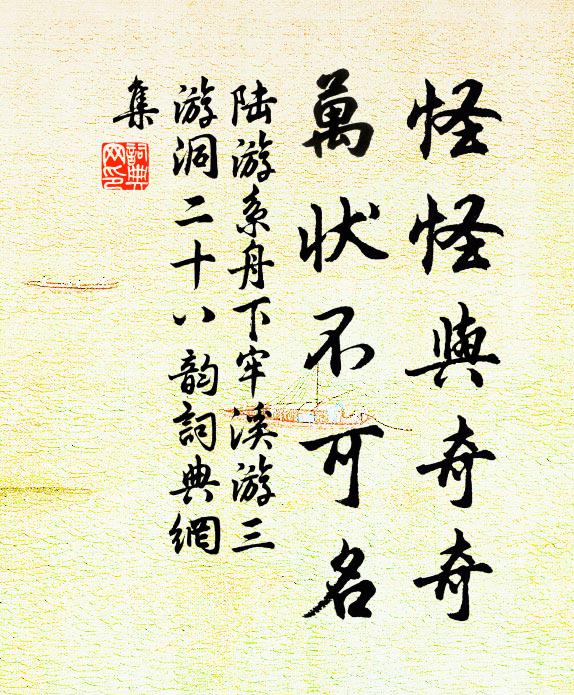 怪怪與奇奇
萬狀不可名
陆游系舟下牢溪游三
游洞二十八韵詞典網
集
詞典
网印